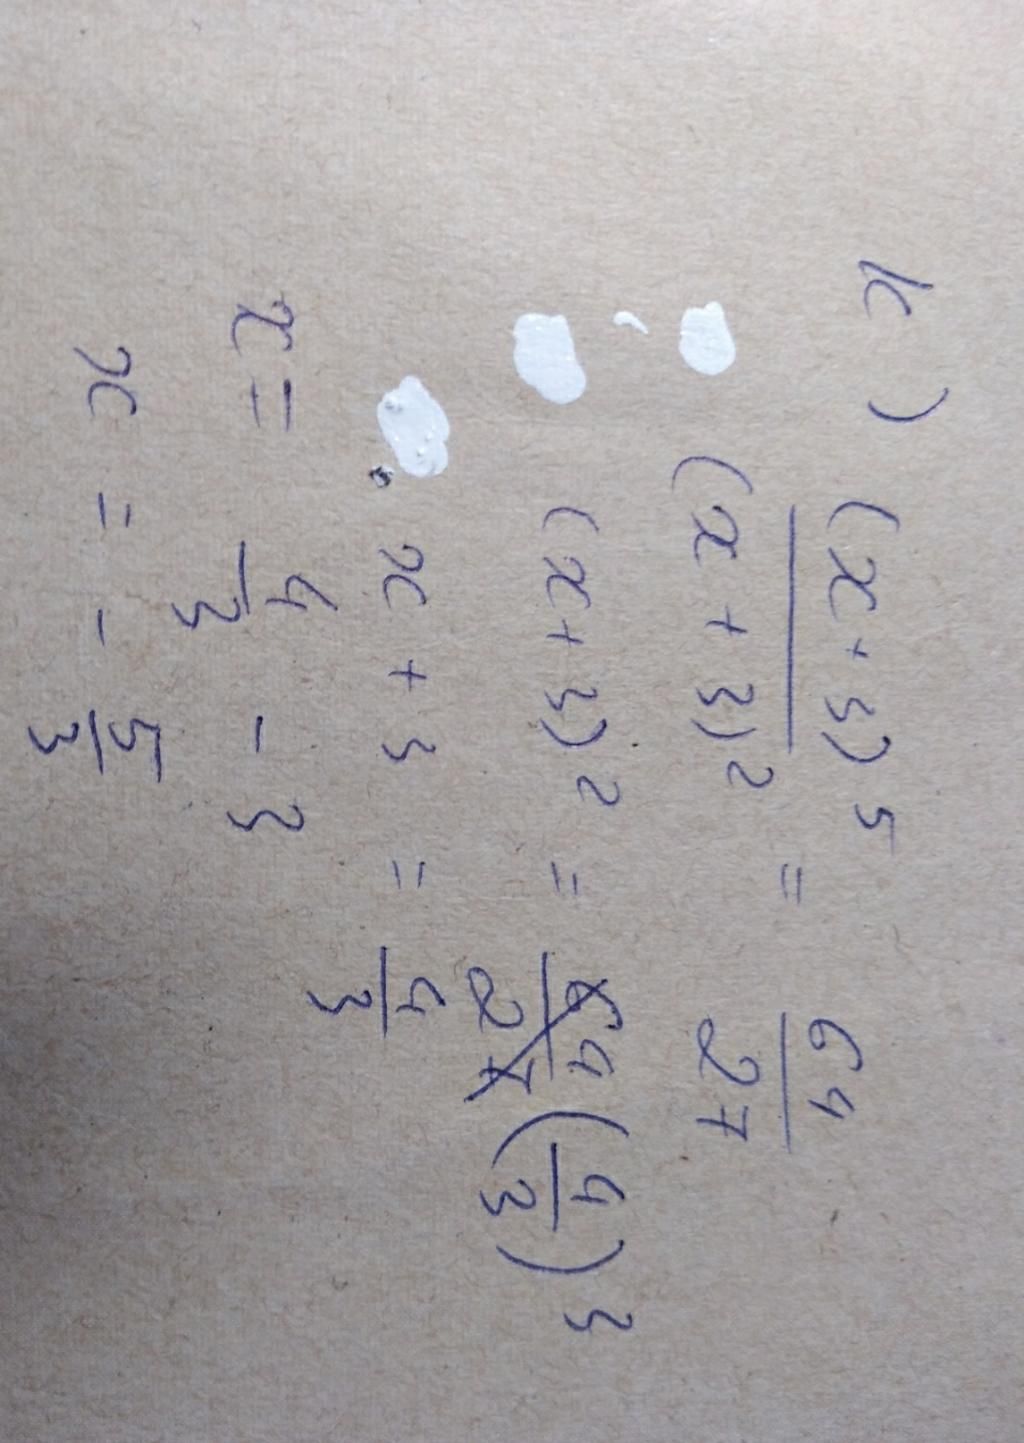 k) (x+3)^5/(x+3)^2 = 64/27
(x+3)^2 = 64/27 (4/3)^3
x+3 = 4/3
x = 4/3 - 3
x = -5/3